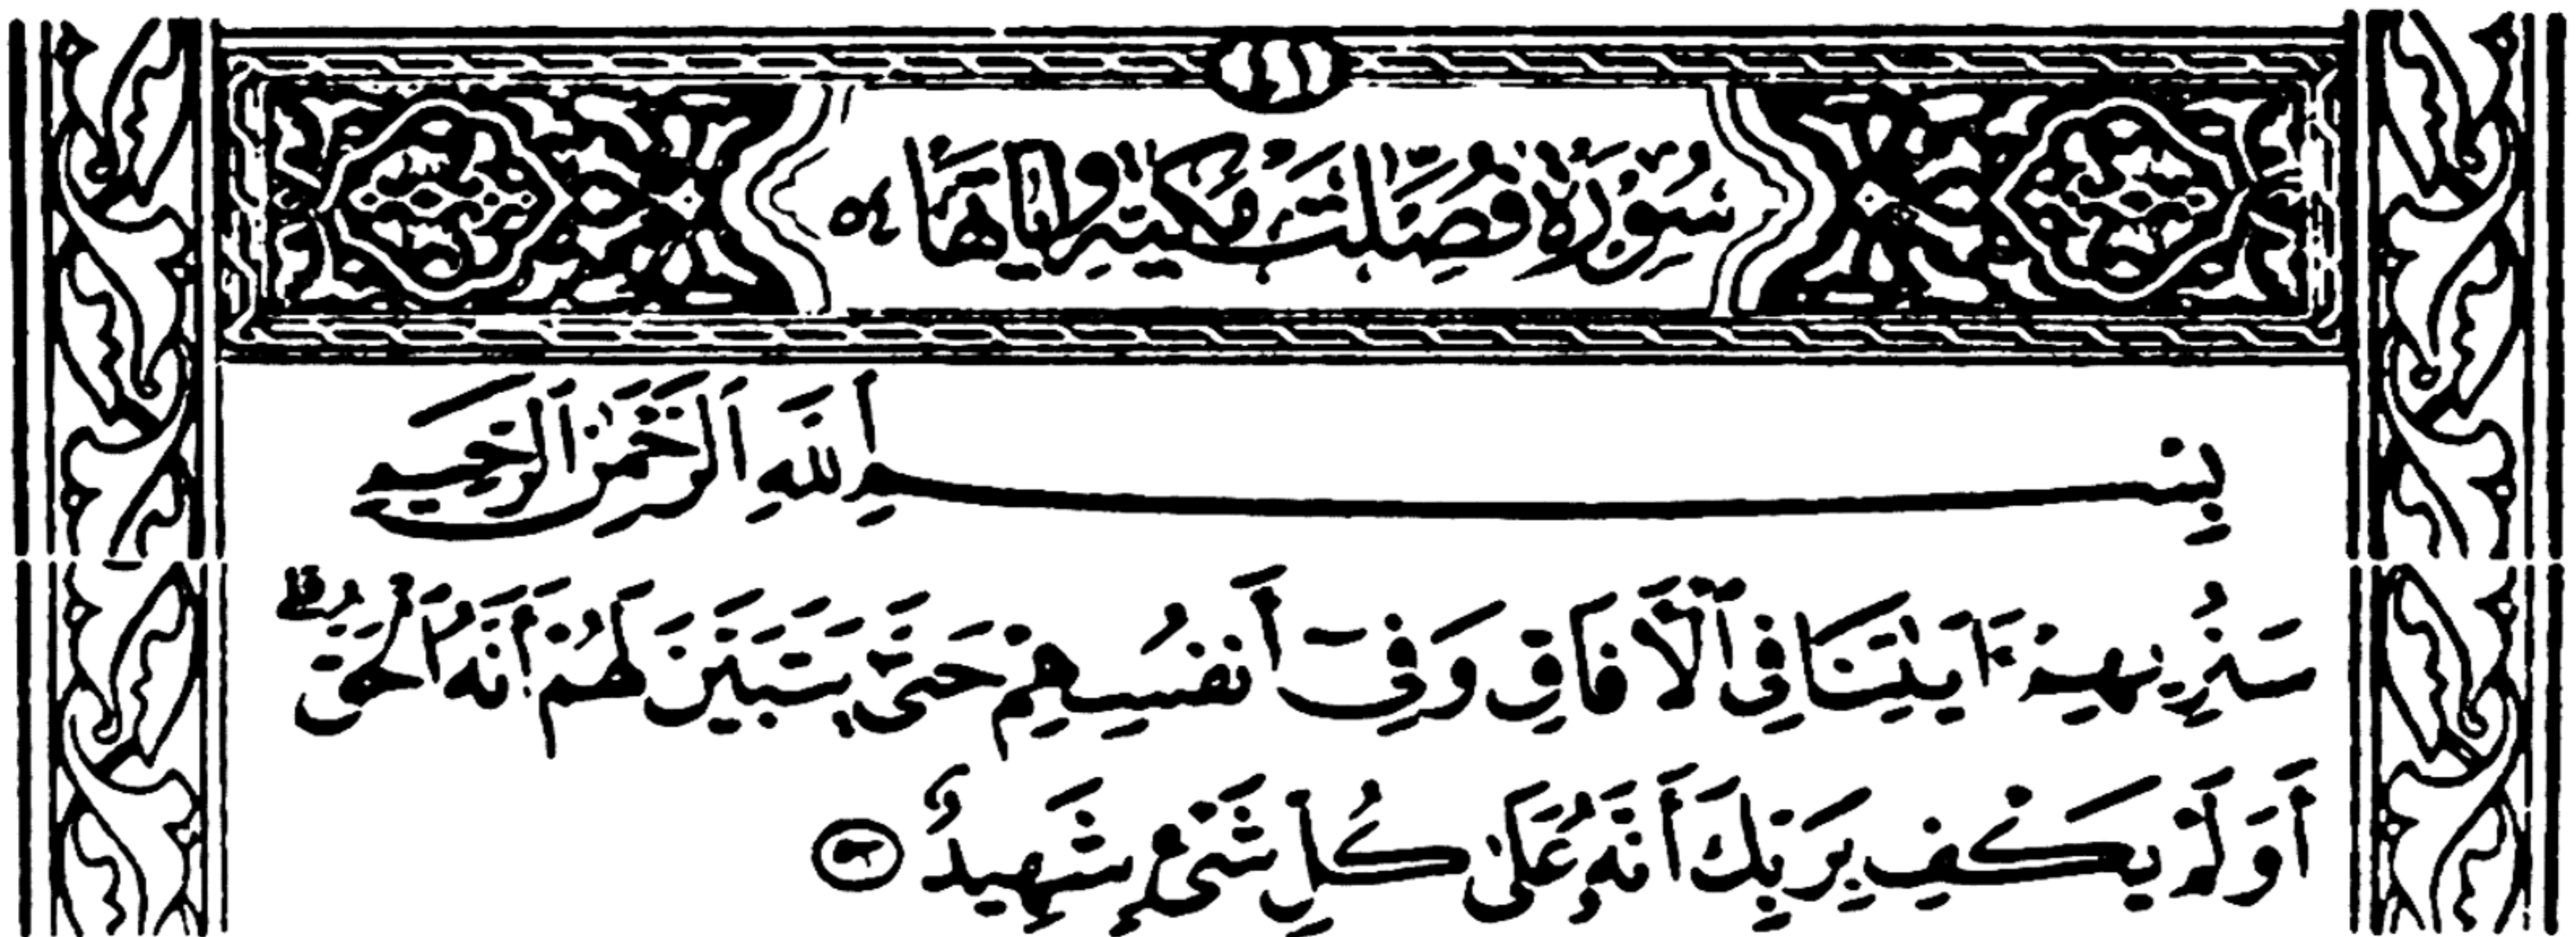 سُورَةُ فُصِّلَتْ مَكِّيَّة وَآيَاتُهَا ٥٤
بِسْمِ ٱللَّهِ ٱلرَّحْمَٰنِ ٱلرَّحِيمِ
سَنُرِيهِمْ ءَايَٰتِنَا فِي ٱلْءَافَاقِ وَفِيٓ أَنفُسِهِمْ حَتَّىٰ يَتَبَيَّنَ لَهُمْ أَنَّهُ ٱلْحَقُّ ۗ
أَوَلَمْ يَكْفِ بِرَبِّكَ أَنَّهُۥ عَلَىٰ كُلِّ شَيْءٍ شَهِيدٌ ٥٣